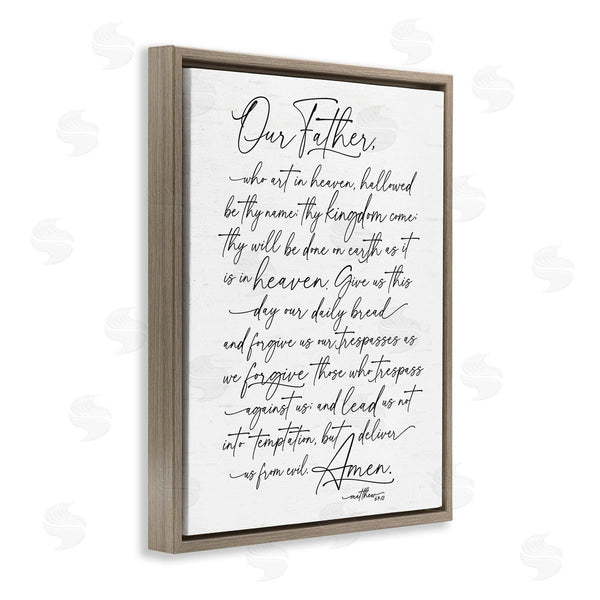 Our Father,
who art in heaven, hallowed
be thy name; thy kingdom come;
thy will be done on earth as it
is in heaven. Give us this
day our daily bread
and forgive us our trespasses as
we forgive those who trespass
against us; and lead us not
into temptation, but deliver
us from evil. Amen.
matthew